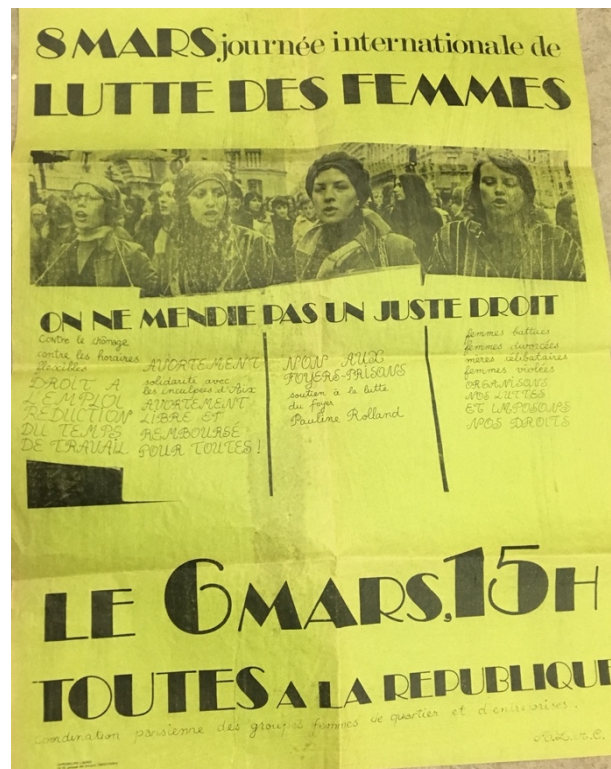 8 MARS journée internationale de
LUTTE DES FEMMES
ON NE MENDIE PAS UN JUSTE DROIT
Contre le chômage
contre les horaires
flexibles
DROIT A
L'EMPLOI
REDUCTION
DU TEMPS
DE TRAVAIL
AVORTEMENT
solidarité avec
les inculpées d'Aix
AVORTEMENT
LIBRE ET
REMBOURSE
POUR TOUTES !
NON AUX
FOYERS-PRISONS
soutien à la lutte
du foyer
Pauline Rolland
femmes battues
femmes divorcées
mères célibataires
femmes violées
ORGANISONS
NOS LUTTES
ET IMPOSONS
NOS DROITS
LE 6 MARS, 15H
TOUTES A LA REPUBLIQUE
Coordination parisienne des groupes femmes de quartier et d'entreprises.